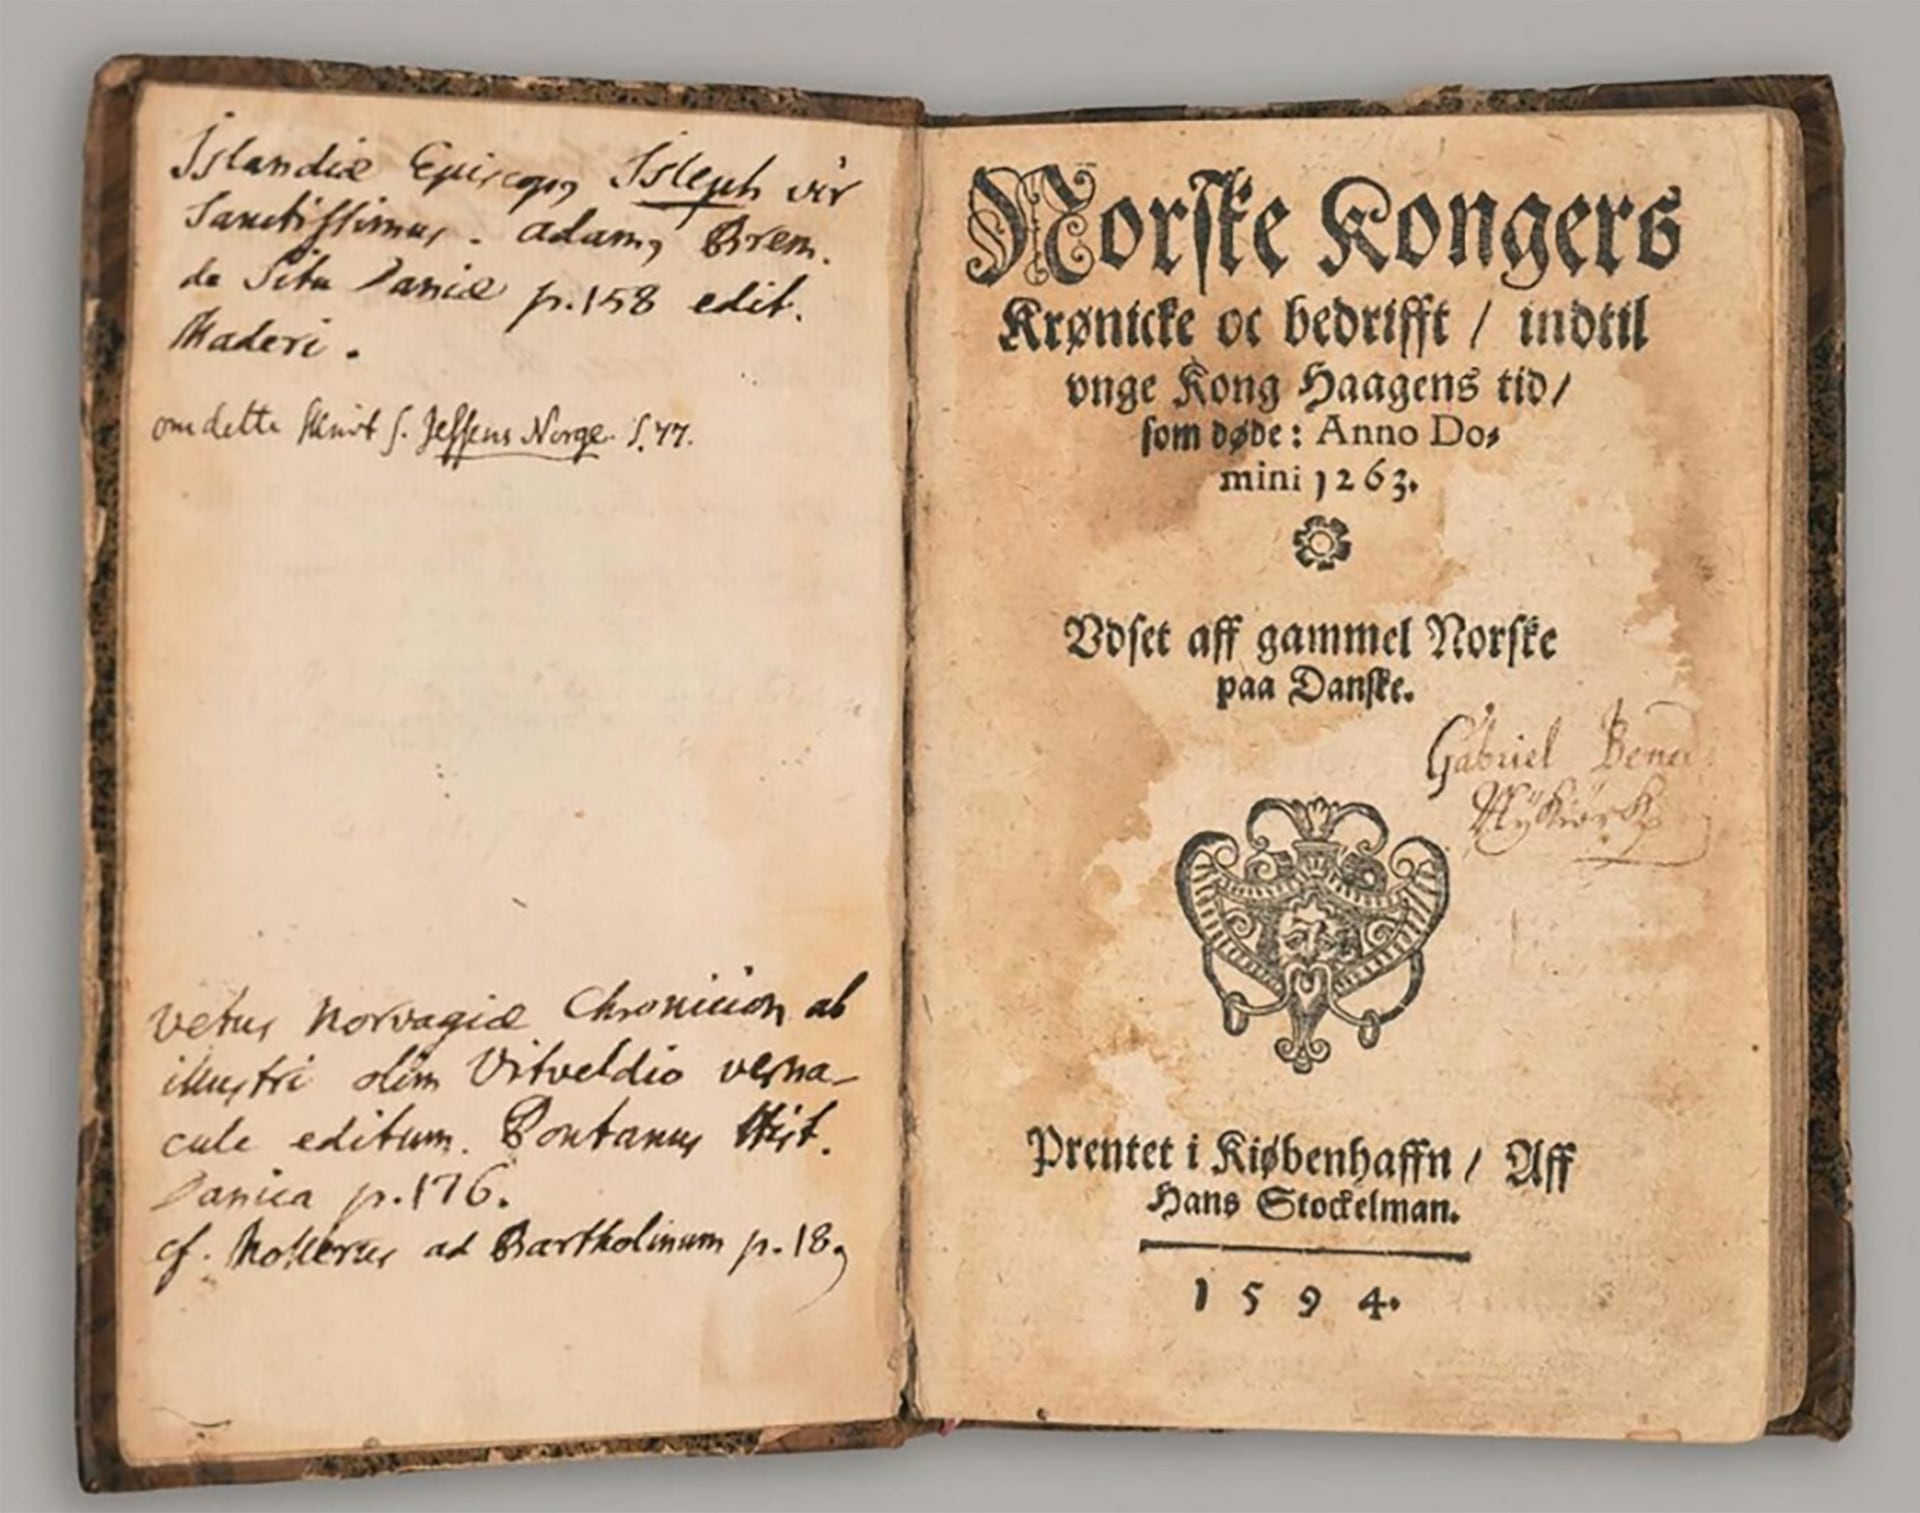 Islandiæ Episcopus Isleph vir
Sanctissimus. Adamus Brem.
de Situ Daniæ p. 158 edit.
Maderi.
om dette Skrivt s. Jessens Norge. S. 77.
Vetus Norvagiæ Chronicion ab
illustri olim Vitveldio verna-
cule editum. Pontanus Hist.
Danica p. 176.
cf. Mollerus ad Bartholinum p. 18
Norske Kongers
Krønicke oc bedrifft / indtil
vnge Kong Haagens tid /
som døde : Anno Do-
mini 1263.
Vdset aff gammel Norske
paa Danske.
Gabriel
Prentet i Kiøbenhaffn / Aff
Hans Stockelman.
1594.